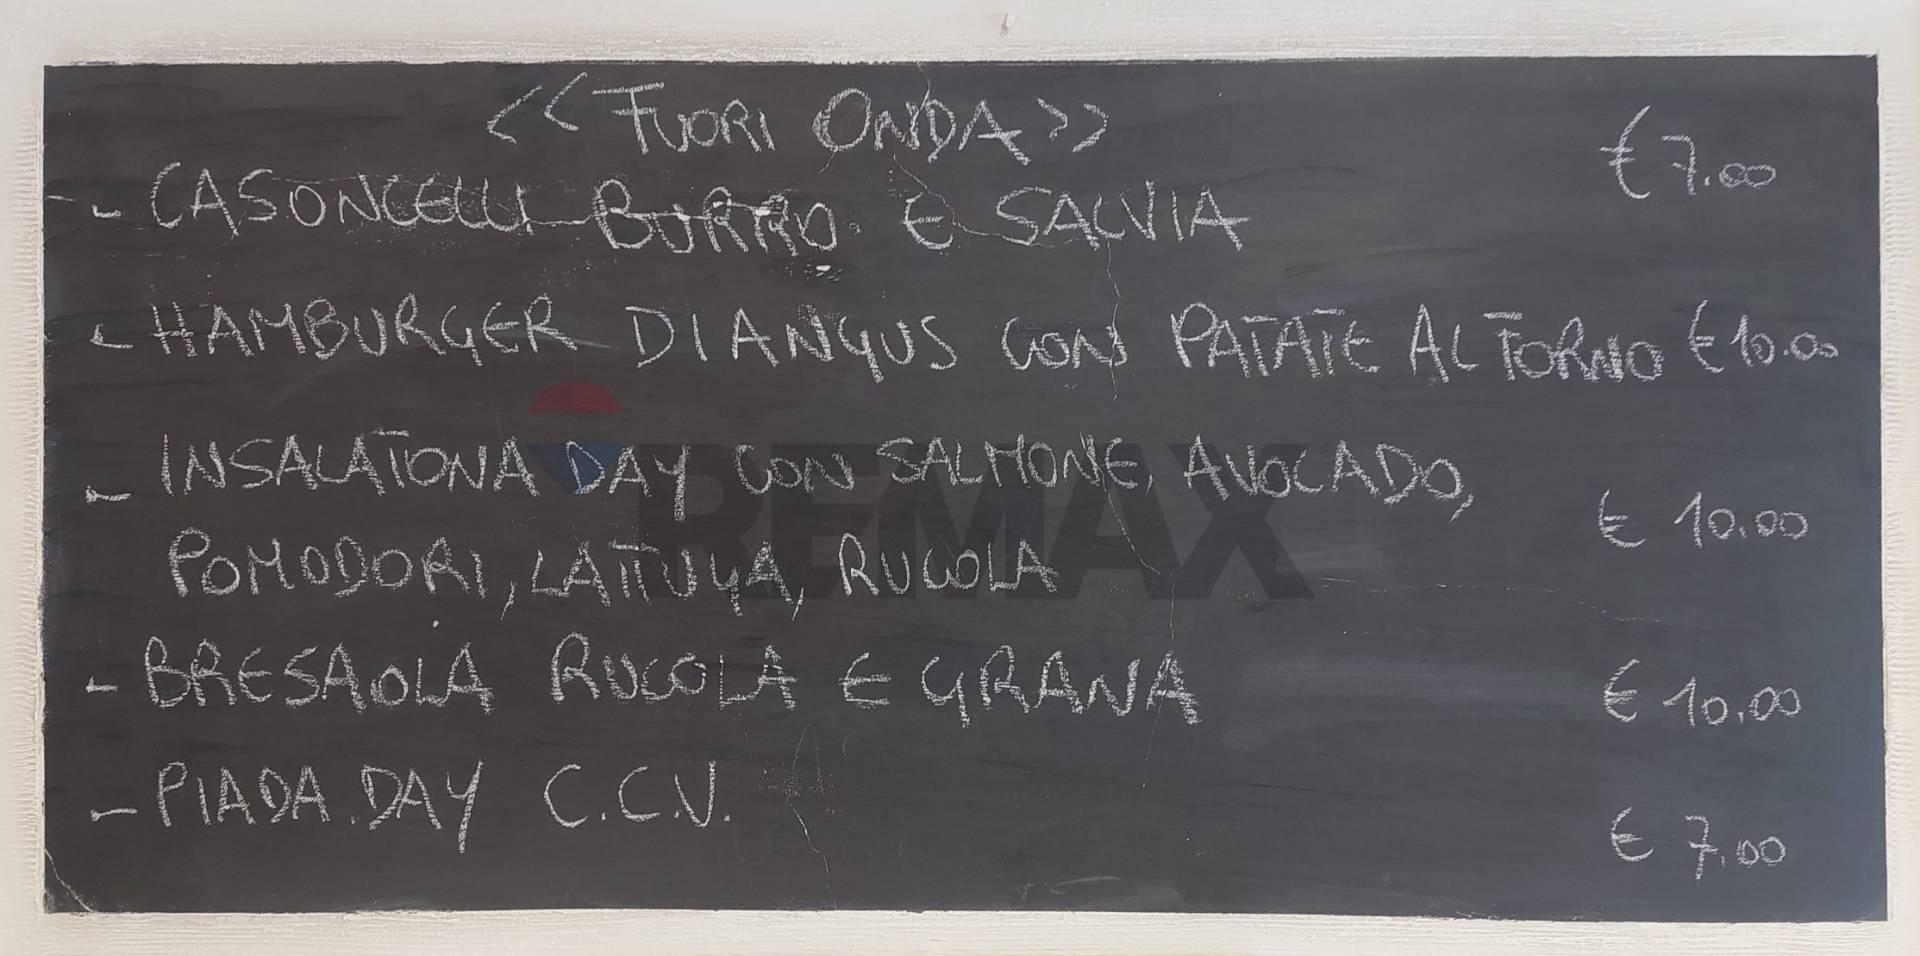 << FUORI ONDA >>
- CASONCELLI BURRO E SALVIA € 7.00
- HAMBURGER DI ANGUS CON PATATE AL FORNO € 10.00
- INSALATONA DAY CON SALMONE, AVOCADO,
POMODORI, LATTUGA, RUCOLA € 10.00
- BRESAOLA RUCOLA E GRANA € 10.00
- PIADA DAY C.C.V. € 7.00
REMAX